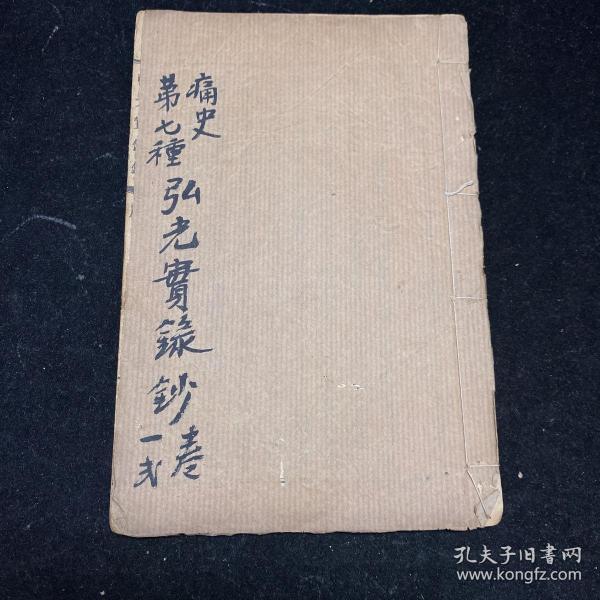 痛史
第七種
弘光實錄鈔
卷
一弍
孔夫子旧書网
www.kongfz.com